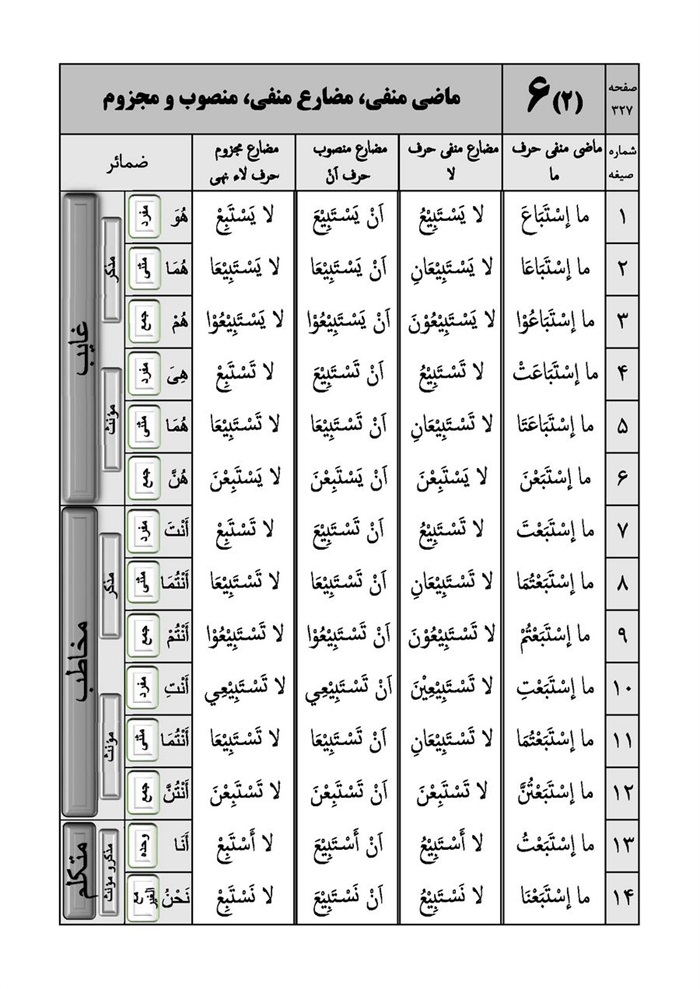 صفحه ۳۲۷ (۲) ۶ ماضی منفی، مضارع منفی، منصوب و مجزوم
شماره صیغه ماضی منفی حرف ما مضارع منفی حرف لا مضارع منصوب حرف اَنْ مضارع مجزوم حرف لاء نهی ضمائر
۱ ما اِسْتَبَاعَ لا یَسْتَبِیْعُ اَنْ یَسْتَبِیْعَ لا یَسْتَبِعْ هُوَ مفرد مذکر غایب
۲ ما اِسْتَبَاعَا لا یَسْتَبِیْعَانِ اَنْ یَسْتَبِیْعَا لا یَسْتَبِیْعَا هُمَا مثنی
۳ ما اِسْتَبَاعُوْا لا یَسْتَبِیْعُوْنَ اَنْ یَسْتَبِیْعُوْا لا یَسْتَبِیْعُوْا هُمْ جمع
۴ ما اِسْتَبَاعَتْ لا تَسْتَبِیْعُ اَنْ تَسْتَبِیْعَ لا تَسْتَبِعْ هِیَ مفرد مؤنث
۵ ما اِسْتَبَاعَتَا لا تَسْتَبِیْعَانِ اَنْ تَسْتَبِیْعَا لا تَسْتَبِیْعَا هُمَا مثنی
۶ ما اِسْتَبَعْنَ لا یَسْتَبِعْنَ اَنْ یَسْتَبِعْنَ لا یَسْتَبِعْنَ هُنَّ جمع
۷ ما اِسْتَبَعْتَ لا تَسْتَبِیْعُ اَنْ تَسْتَبِیْعَ لا تَسْتَبِعْ أَنْتَ مفرد مذکر مخاطب
۸ ما اِسْتَبَعْتُمَا لا تَسْتَبِیْعَانِ اَنْ تَسْتَبِیْعَا لا تَسْتَبِیْعَا أَنْتُمَا مثنی
۹ ما اِسْتَبَعْتُمْ لا تَسْتَبِیْعُوْنَ اَنْ تَسْتَبِیْعُوْا لا تَسْتَبِیْعُوْا أَنْتُمْ جمع
۱۰ ما اِسْتَبَعْتِ لا تَسْتَبِیْعِیْنَ اَنْ تَسْتَبِیْعِي لا تَسْتَبِیْعِي أَنْتِ مفرد مؤنث
۱۱ ما اِسْتَبَعْتُمَا لا تَسْتَبِیْعَانِ اَنْ تَسْتَبِیْعَا لا تَسْتَبِیْعَا أَنْتُمَا مثنی
۱۲ ما اِسْتَبَعْتُنَّ لا تَسْتَبِعْنَ اَنْ تَسْتَبِعْنَ لا تَسْتَبِعْنَ أَنْتُنَّ جمع
۱۳ ما اِسْتَبَعْتُ لا أَسْتَبِیْعُ اَنْ أَسْتَبِیْعَ لا أَسْتَبِعْ أَنَا وحده مذکر و مؤنث متکلم
۱۴ ما اِسْتَبَعْنَا لا نَسْتَبِیْعُ اَنْ نَسْتَبِیْعَ لا نَسْتَبِعْ نَحْنُ مع الغیر